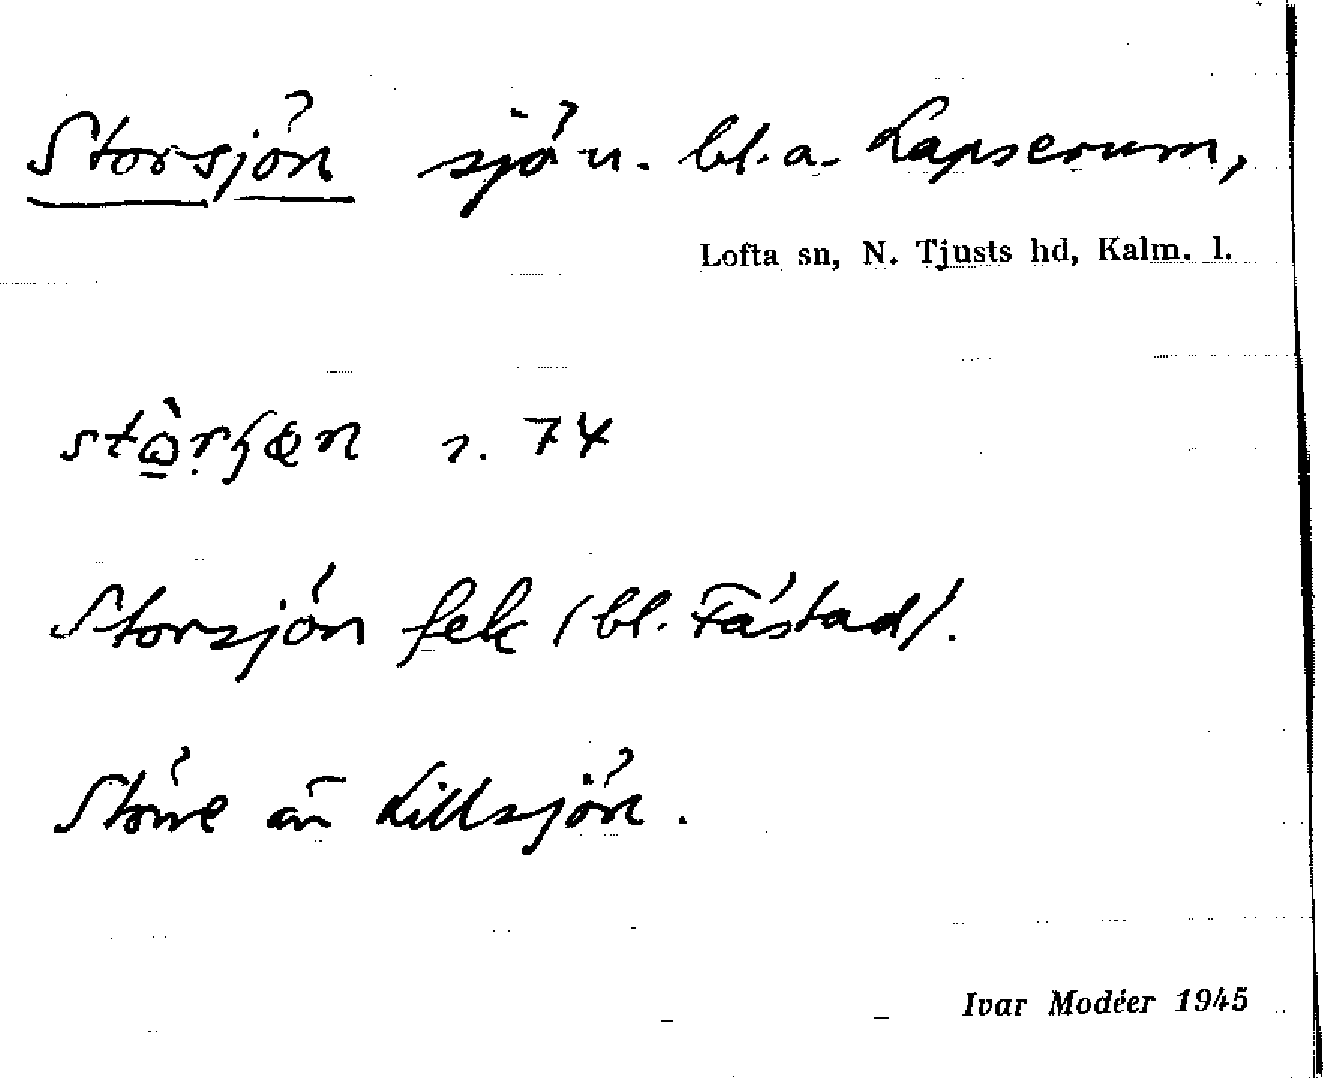 Storsjön sjö u. bl. a. Lapserum,
Lofta sn, N. Tjusts hd, Kalm. l.
s. 74
Storsjön fek (bl. Fästad).
Större än Lillsjön.
Ivar Modéer 1945